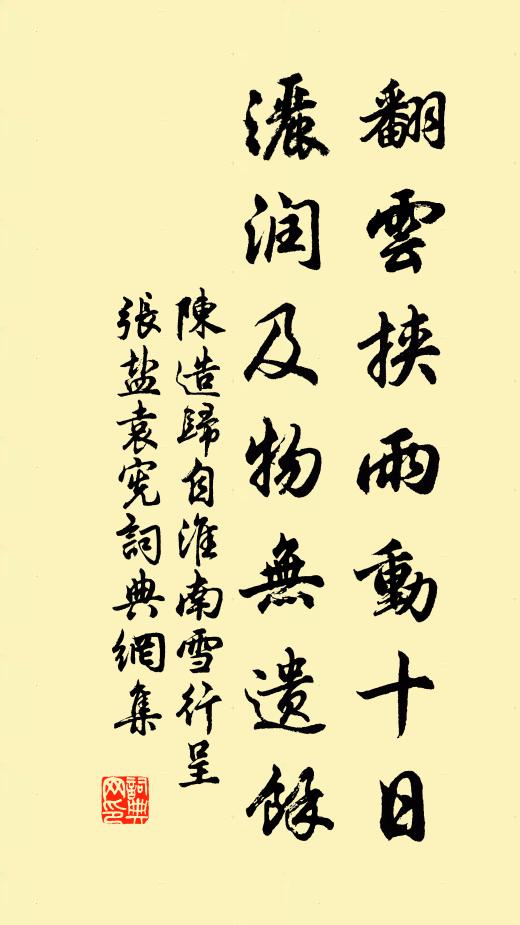 翻雲挾雨動十日
灑润及物無遺餘
陳造歸自淮南雪行呈
張盐袁宪詞典網集
詞典网印